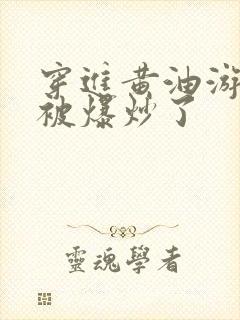 穿進黄油游
被爆炒了
靈魂學者